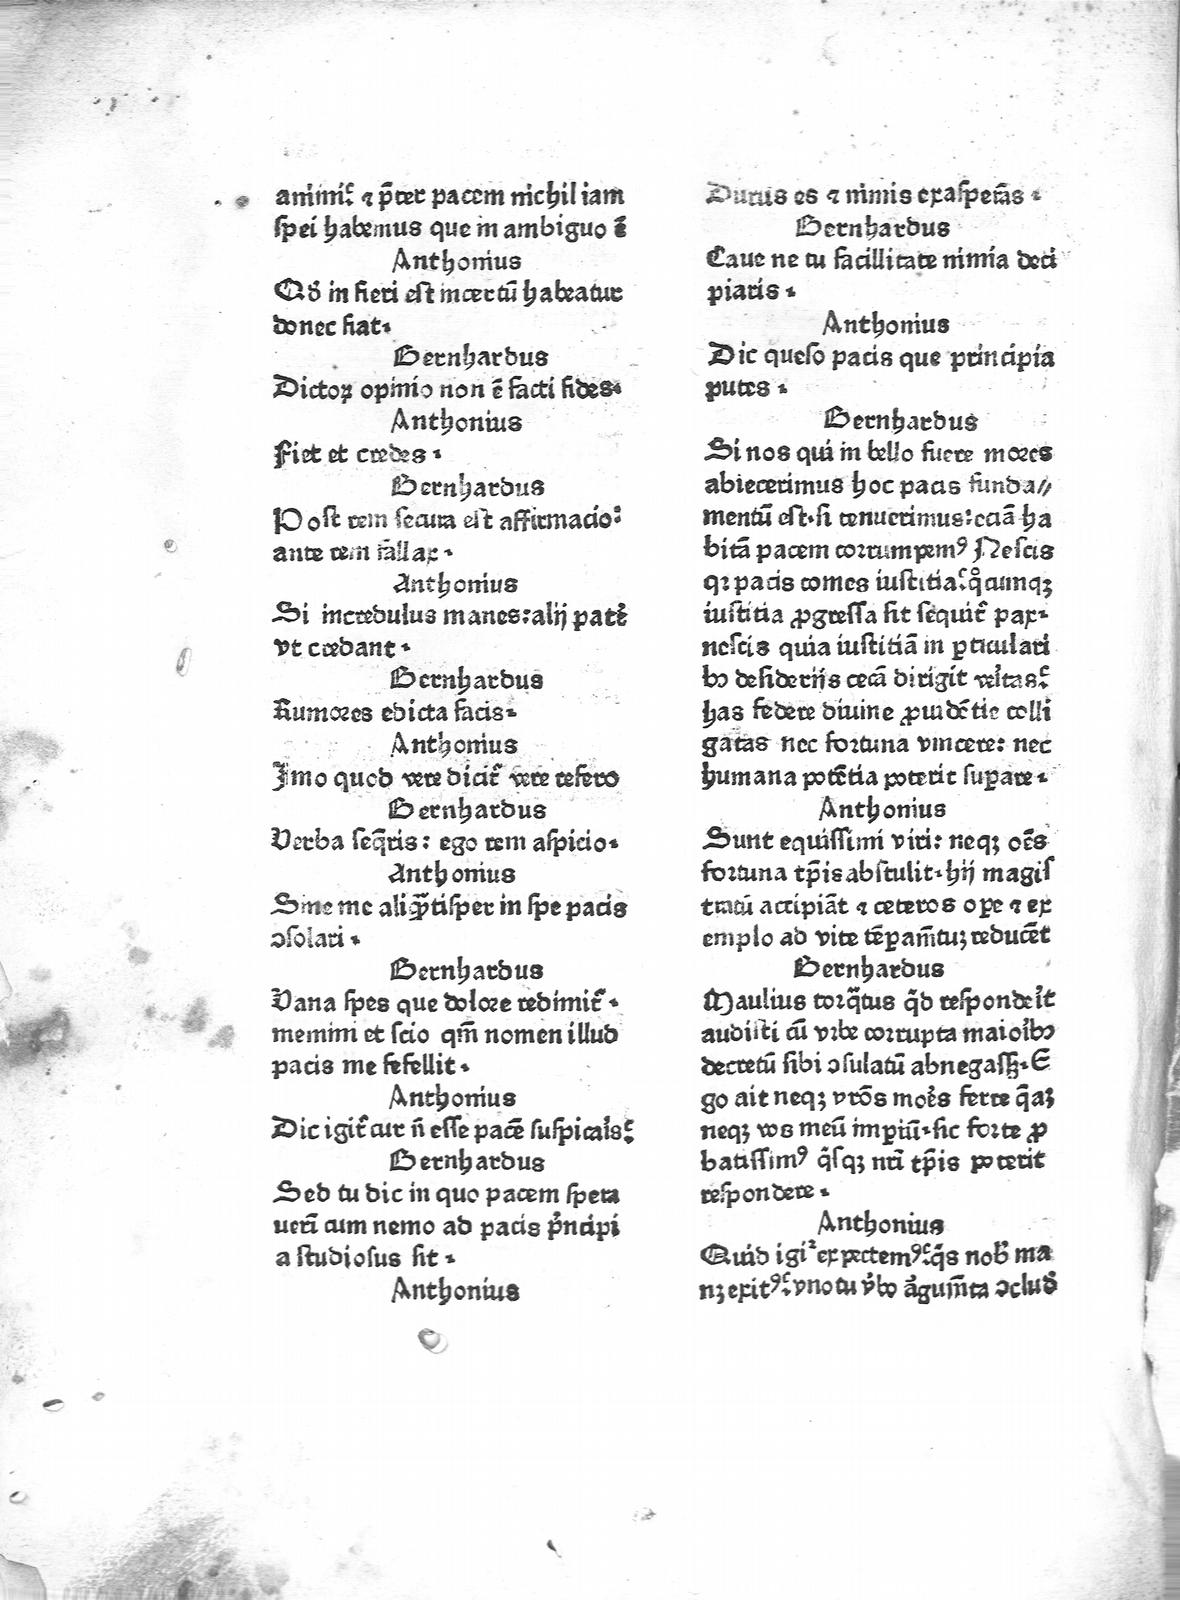 animis? ⁊ p̄ter pacem nichil iam
ſpei habemus que in ambiguo ē
Anthonius
Qd in fieri eſt incertū habeatur
donec fiat.
Bernhardus
Dictoꝝ opinio non ē facti fides.
Anthonius
Fiet et credes.
Bernhardus
Poſt rem ſecura eſt affirmacio:
ante rem fallax.
Anthonius
Si incredulus manes: alij patēr
vt credant.
Bernhardus
Rumores edicta facis.
Anthonius
Jmo quod vere dicit̄ vere refero
Bernhardus
Verba ſeq̄ris: ego rem aſpicio.
Anthonius
Sine me aliqͣ̄tiſper in ſpe pacis
ↄſolari.
Bernhardus
Vana ſpes que dolore redimit̄.
memini et ſcio qm̄ nomen illud
pacis me fefellit.
Anthonius
Dic igit̄ cur n̄ eſſe pacē ſuſpicaris?
Bernhardus
Sed tu dic in quo pacem ſpera
uerī cum nemo ad pacis pͥncipi
a ſtudioſus ſit.
Anthonius
Durus es ⁊ nimis exaſperās.
Bernhardus
Caue ne tu facillitate nimia deci
piaris.
Anthonius
Dic queſo pacis que principia
putes.
Bernhardus
Si nos qui in bello fuere mores
abiecerimus hoc pacis funda//
mentū eſt. ſi tenuerimus: eciā ha
bitā pacem corrumpemꝰ Neſcis
qꝛ pacis comes iuſticia? q̊cunqꝫ
iuſtitia ꝓgreſſa ſit ſequit̄ pax.
neſcis quia iuſtitiā in ꝑticulari
bꝫ deſiderijs cecā dirigit veritas?
has federe diuine ꝓuidētie colli
gatas nec fortuna vincere: nec
humana potētia poterit ſuꝑare.
Anthonius
Sunt equiſſimi viri: neqꝫ oēs
fortuna tp̄is abſtulit. hij magiſ
tratū accipiāt ⁊ ceteros ope ⁊ ex
emplo ad vite tēꝑam̄tuꝫ reducēt
Bernhardus
Maulius torqͣtus qͥd reſponderit
audiſti cū vrbe corrupta maioribꝫ
decretū ſibi ↄſulatū abnegaſſꝫ. E
go ait neqꝫ vr̄os mores ferre qͣaꝫ
neqꝫ vos meū imꝑiū. ſic forte ꝓ
batiſſimꝰ qͥſqꝫ nr̄i tp̄is poterit
reſpondere.
Anthonius
Quid igiꝛ expectemꝰ? qͥs nob̄ ma
nꝫ exitꝰ? vno tu v̄bo argum̄ta ↄclud